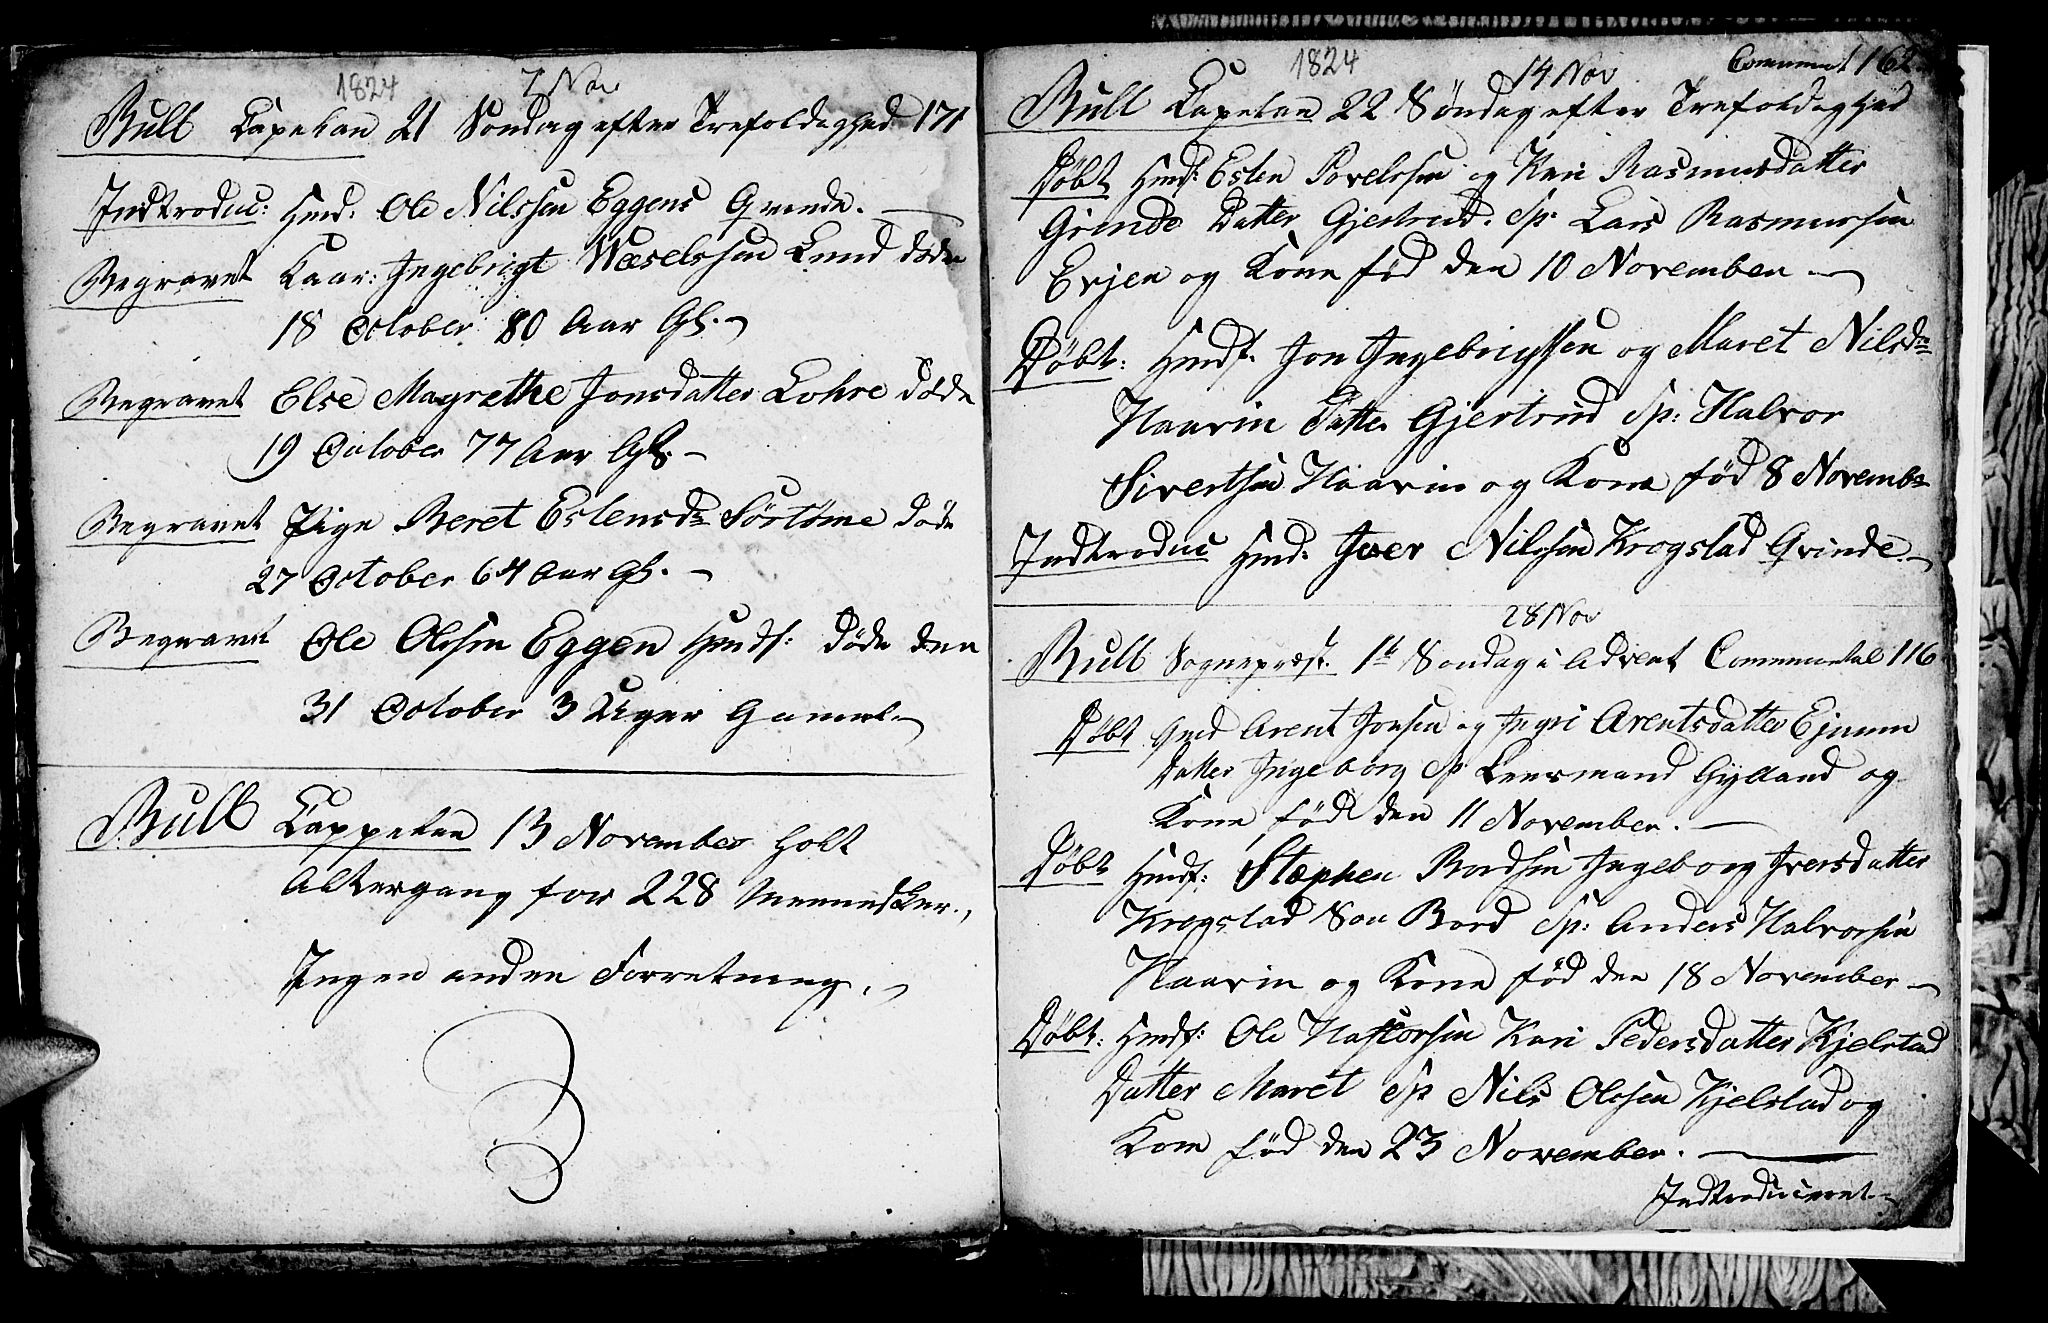 1824 7 Nov
Bull Capelan 21 Søndag efter Trefoldighed 171
Indtroduc: Hmd. Ole Nilssen Eggens Qvinde.
Begravet Kaar: Ingebrigt Wæselssen Lund døde
18 October 80 Aar Gl.
Begravet Else Magrethe Jonsdatter Lohre døde
19 October 77 Aar Gl.
Begravet Pige Beret Estensdr Sørtømme døde
27 October 64 Aar Gl.
Begravet Ole Olssen Eggen Hmds: døde den
31 October 3 Uger Gammel
Bull Cappelan 13 November holt
Altergang for 228 Mennesker.,
Ingen anden Forretning.
1824 14 Nov Communt 162
Bull Capelan 22 Søndag efter Trefoldighed
Døbt Hmds: Esten Povelssen og Kari Rasmusdatter
Grinde Datter Gjertrud. Sp. Lars Rasmussen
Evjen og Kone fød den 10 November
Døbt: Hmdf. Jon Ingebrigtssen og Maret Nilsdr
Haavin Datter Gjertrud Sp: Halvor
Sivertsen Haavin og Kone fød 8 Novembr
Indtroduc Hmd. Iver Nilssen Krogstad Qvinde.
28 Nov
Bull Sognepræst. 1te Søndag i Advent Communtal 116
Døbt Gmd Arent Jonsen og Ingri Arentsdatter
Datter Ingeborg Sp Lensmand Gylland og
Kone fød den 11 November.
Døbt Hmdf: Stæphen Bordsen Ingeborg Iversdatter
Krogstad Søn Bord Sp: Anders Halvorsen
Haavin og Kone fød den 18 November
Døbt: Hmdf: Ole Haftorsen Kari Pedersdatter Kjelstad
Datter Maret Sp Nils Olssen Kjelstad og
Kone fød den 23 November.
Indtroduceret